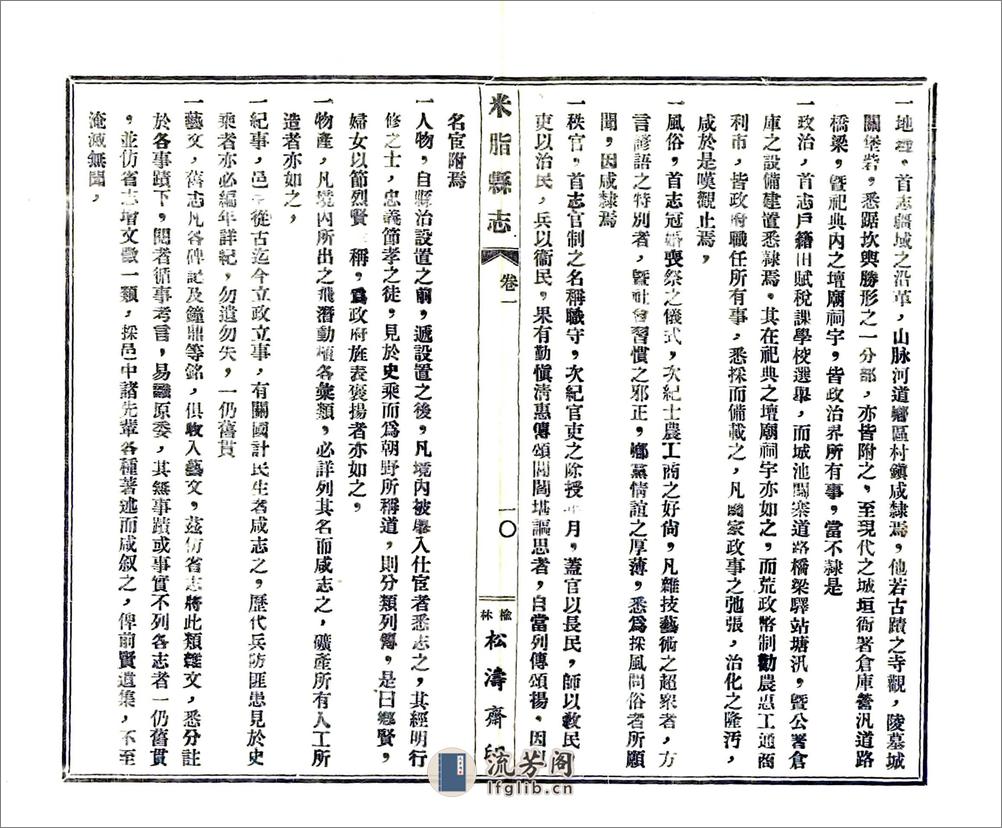 一地理，首志疆域之沿革，山脉河道鄉區村鎮咸隸焉，他若古蹟之寺觀，陵墓城
關堡砦，悉踞坎輿勝形之一分部，亦皆附之，至現代之城垣衙署倉庫營汛道路
橋梁，曁祀典內之壇廟祠宇，皆政治界所有事，當不隸是
一政治，首志戶籍田賦稅課學校選舉，而城池關寨道路橋梁驛站塘汛，曁公署倉
庫之設備建置悉隸焉，其在祀典之壇廟祠宇亦如之，而荒政幣制勸農惠工通商
利市，皆政府職任所有事，悉採而備載之，凡國家政事之弛張，治化之隆汚，
咸於是嘆觀止焉，
一風俗，首志冠婚喪祭之儀式，次紀士農工商之好尙，凡雜技藝術之超衆者，方
言諺語之特別者，曁社會習慣之邪正，鄉黨情誼之厚薄，悉爲採風問俗者所願
聞，因咸隸焉，
一秩官，首志官制之名稱職守，次紀官吏之除授年月，蓋官以長民，師以敎民
吏以治民，兵以衞民，果有勤愼清惠傳頌閭閻堪謳思者，自當列傳頌揚，因以
米脂縣志
卷一
一〇
榆林
松濤齋印
名宦附焉
一人物，自縣治設置之前，遞設置之後，凡境內被舉入仕宦者悉志之，其經明行
修之士，忠義節孝之徒，見於史乘而爲朝野所稱道，則分類列傳，是曰鄉賢，
婦女以節烈賢　稱，爲政府旌表褒揚者亦如之，
一物產，凡境內所出之飛潛動植各彙類，必詳列其名而咸志之，礦產所有人工所
造者亦如之，
一紀事，邑　從古迄今立政立事，有關國計民生者咸志之，歷代兵防匪患見於史
乘者亦必編年詳紀，勿遺勿失，一仍舊貫
一藝文，舊志凡各碑記及鐘鼎等銘，俱收入藝文，茲仿省志將此類雜文，悉分註
於各事蹟下，閱者循事考言，易識原委，其無事蹟或事實不列各志者一仍舊貫
，並仿省志增文徵一類，採邑中諸先輩各種著述而咸叙之，俾前賢遺集，不至
淹滅無聞，
流芳阁
lfglib.cn